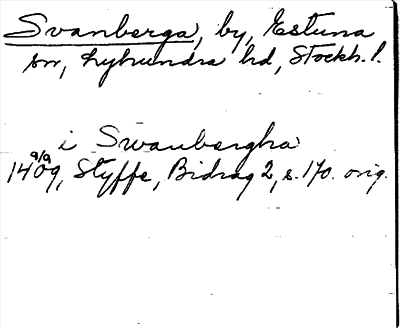 Svanberga, by, Estuna
sn, Lyhundra hd, Stockh. l.
i Swanbergha
a/a
1409, Styffe, Bidrag 2, s. 170. orig.